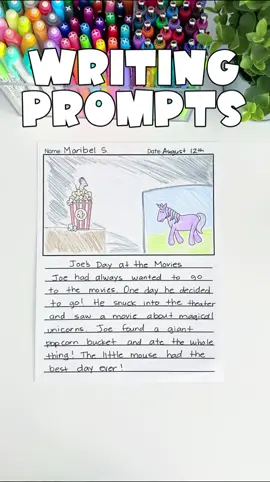 WRITING
PROMPTS
Name: Maribel S. Date: August 12th
Joe's Day at the Movies
Joe had always wanted to go
to the movies. One day he decided
to go! He snuck into the theater
and saw a movie about magical
unicorns. Joe found a giant
popcorn bucket and ate the whole
thing! The little mouse had the
best day ever!